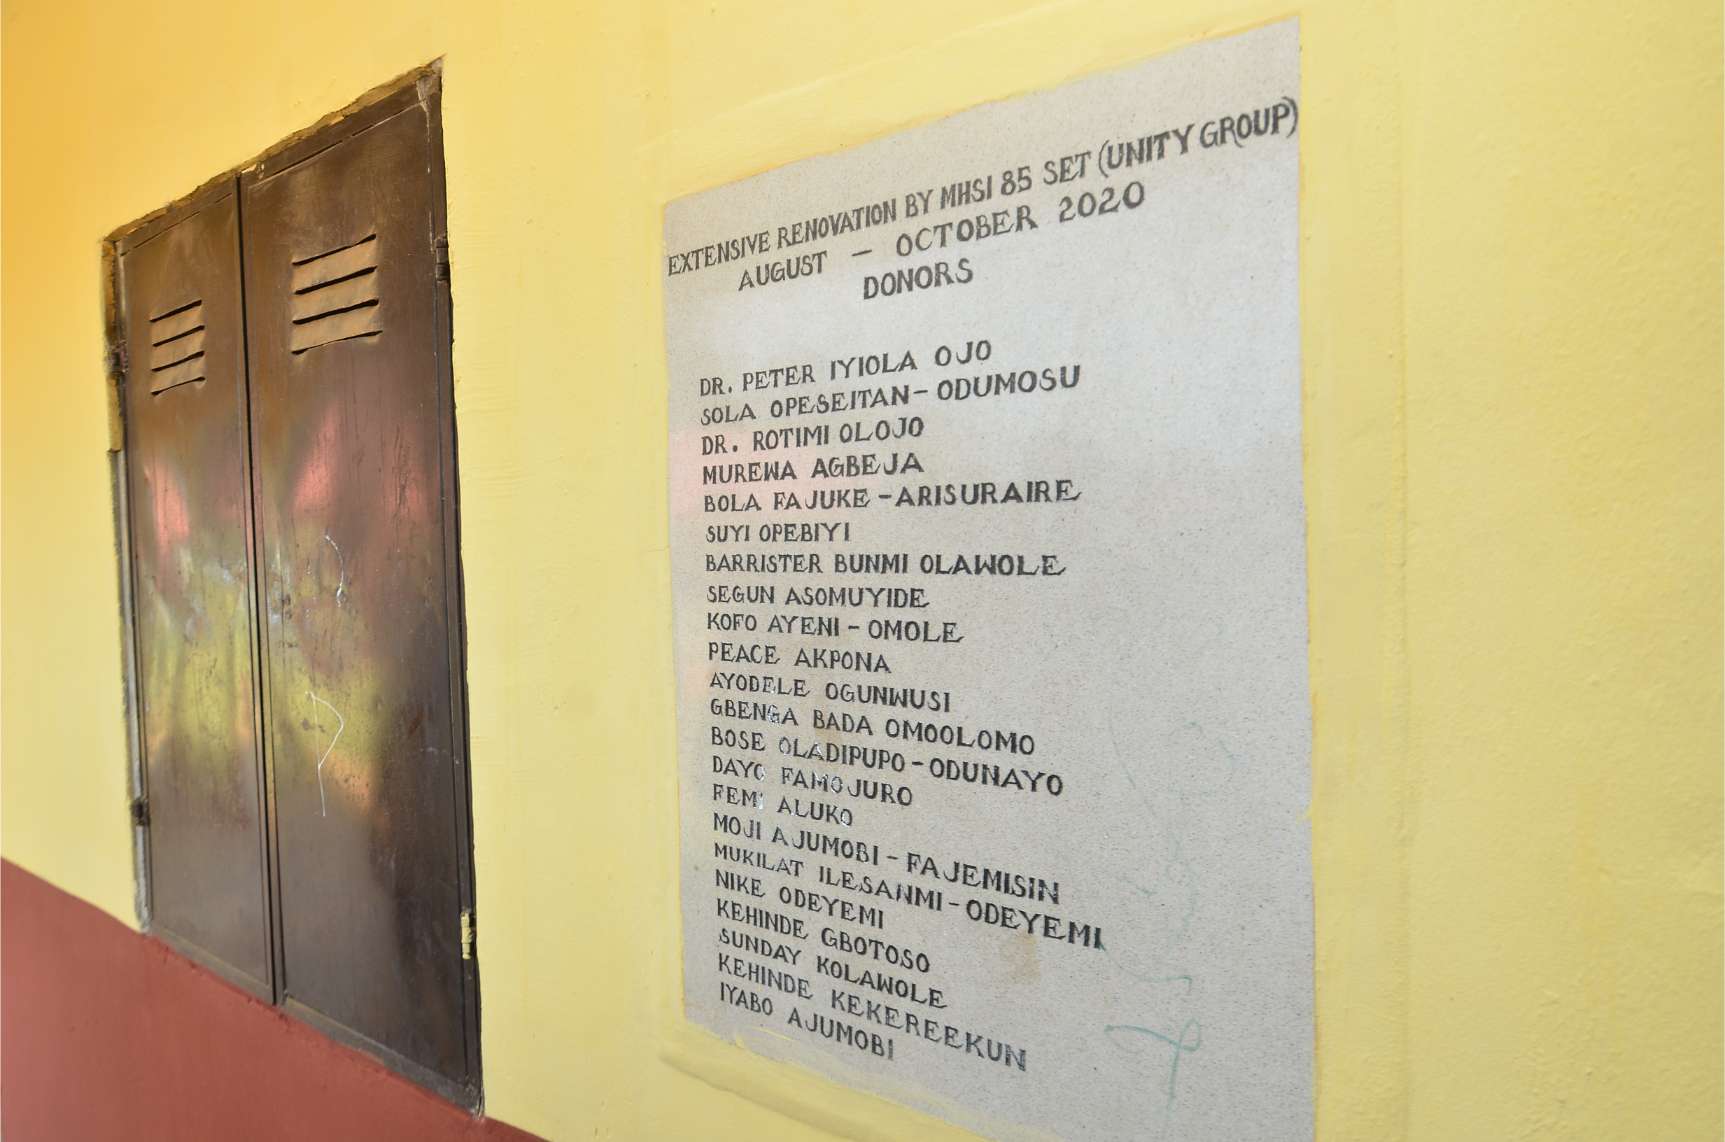 EXTENSIVE RENOVATION BY MHSI 85 SET (UNITY GROUP)
AUGUST – OCTOBER 2020
DONORS
DR. PETER IYIOLA OJO
SOLA OPESEITAN-ODUMOSU
DR. ROTIMI OLOJO
MUREWA AGBEJA
BOLA FAJUKE-ARISURAIRE
SUYI OPEBIYI
BARRISTER BUNMI OLAWOLE
SEGUN ASOMUYIDE
KOFO AYENI-OMOLE
PEACE AKPONA
AYODELE OGUNWUSI
GBENGA BADA OMOOLOMO
BOSE OLADIPUPO-ODUNAYO
DAYO FAMOJURO
FEMI ALUKO
MOJI AJUMOBI-FAJEMISIN
MUKILAT ILESANMI-ODEYEMI
NIKE ODEYEMI
KEHINDE GBOTOSO
SUNDAY KOLAWOLE
KEHINDE KEKEREEKUN
IYABO AJUMOBI